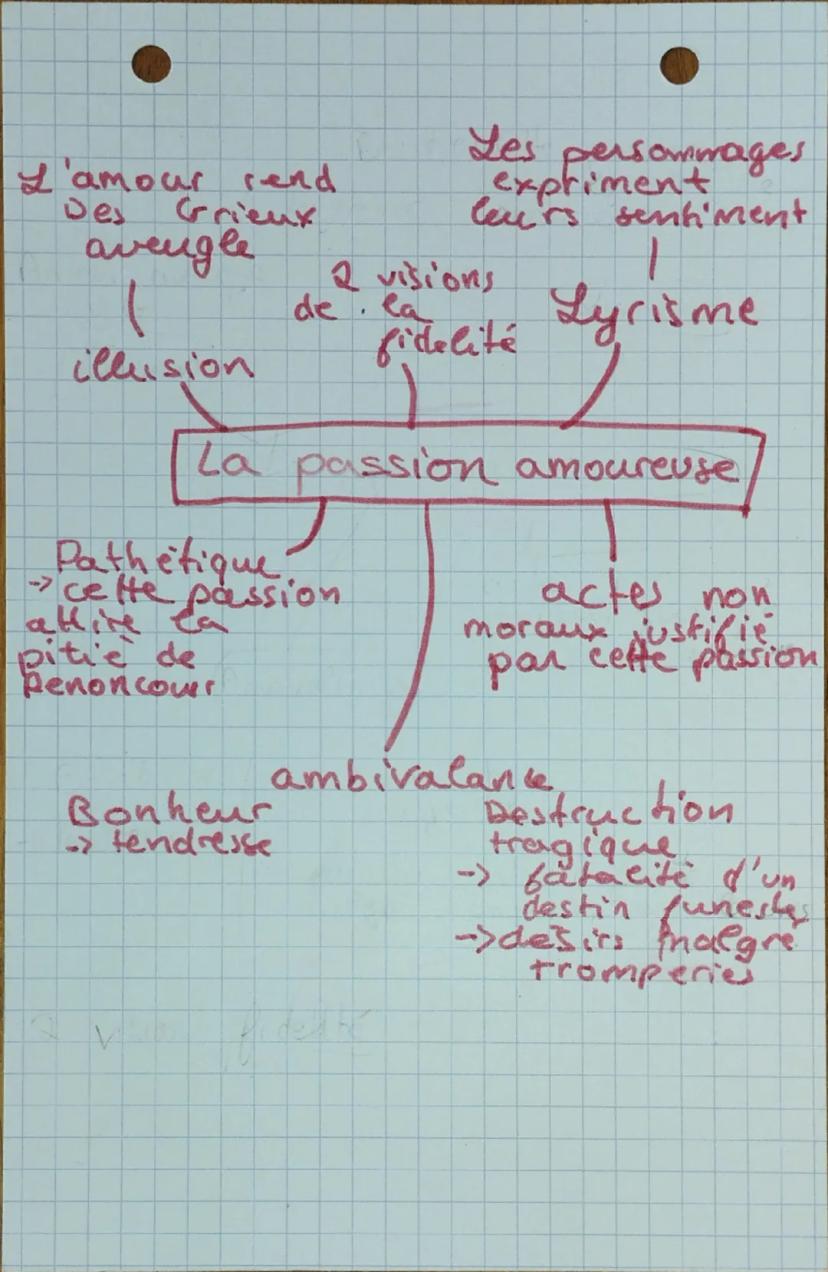 L'amour rend
Des Grieux
aveugle
illusion
2 visions
de la
fidelité
Les personnages
expriment
leurs sentiment
Lyrisme
La passion amoureuse
Pathétique
-> cette passion
attire la
pitié de
Renoncour
actes non
moraux justifié
par cette passion
ambivalance
Bonheur
-> tendresse
Destruction
tragique
-> fatalité d'un
destin funestes
-> desirs malgré
tromperies
2 vision fidelité